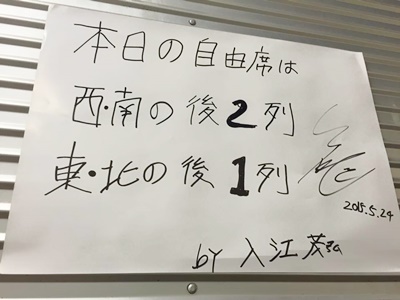 本日の自由席は
西・南の後2列
東・北の後1列
2015.5.24
by 入江茂弘